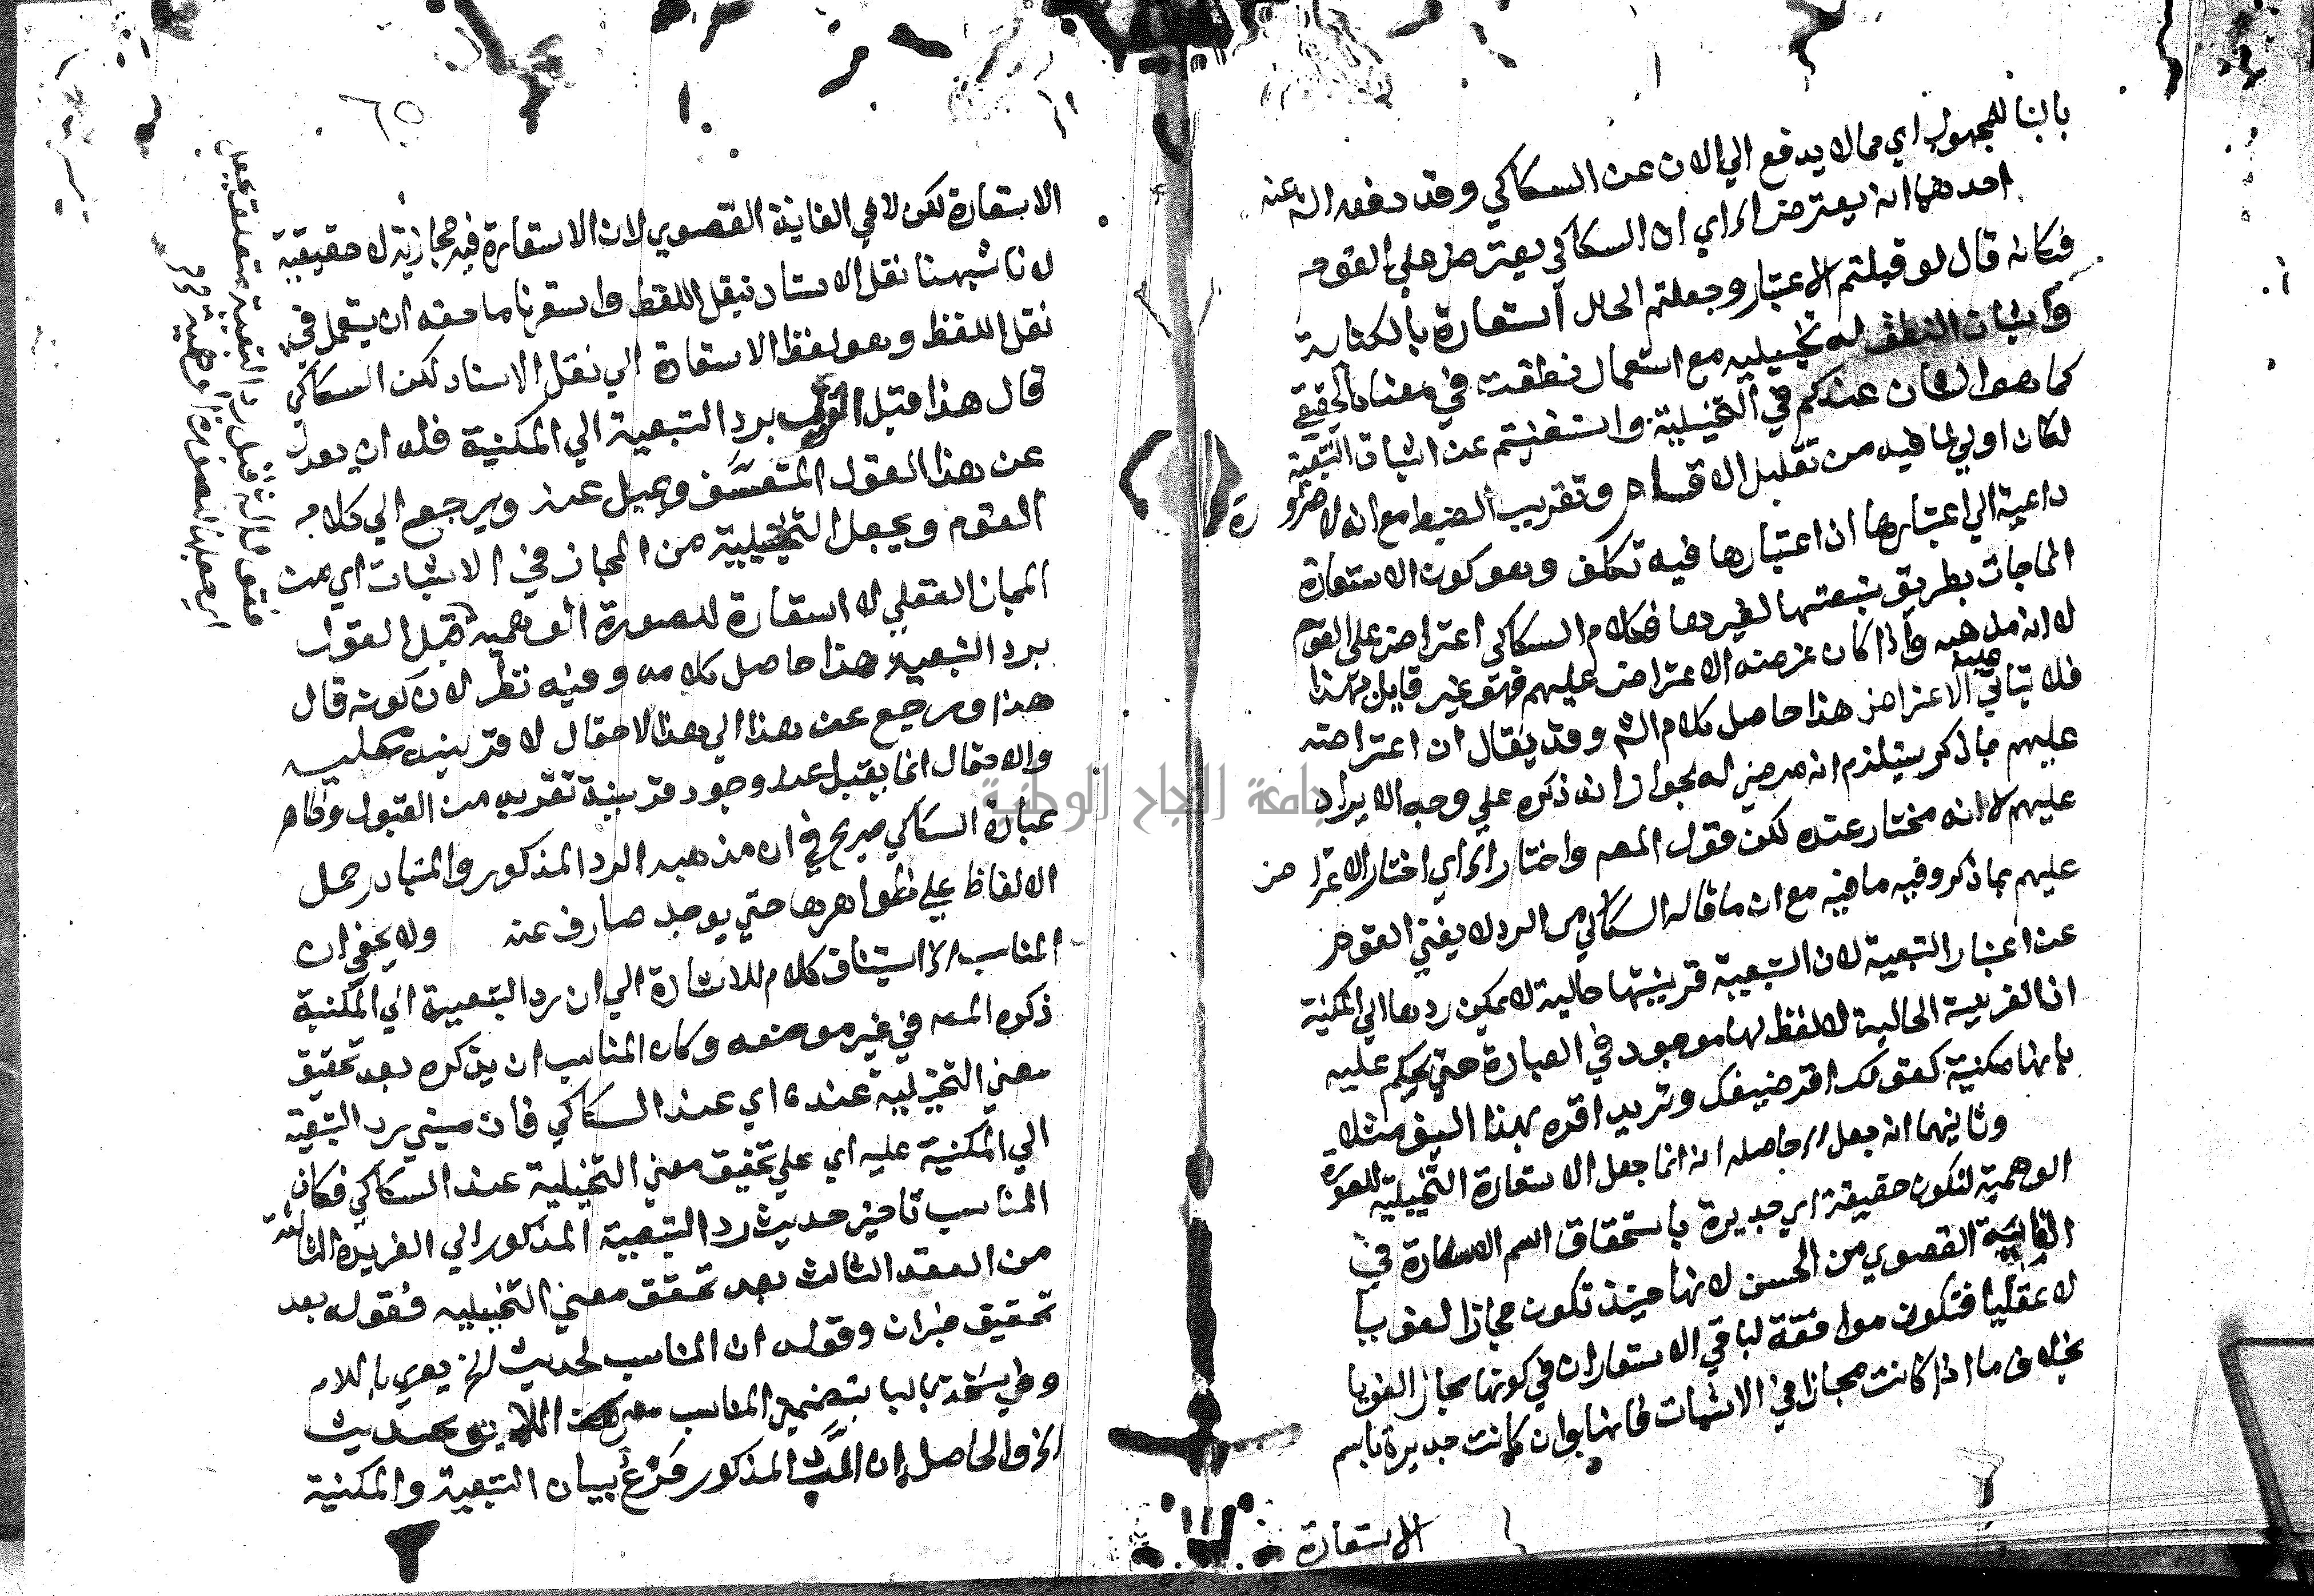 بالبنا للمجهول اي مما لا يدفع الي الان عن السكاكي وقد دفعه الش عنه
احدهما انه يعترض اﻫ اي ان السكاكي يعترض علي القوم
فكانه قال لو قبلتم الاعتبار وجعلتم الحال استعارة بالكناية
واثبات النطق له تخييليه مع استعمال نطقت في معناه الحقيقي
كما هو الشان عندكم في التخييلية واستغنيتم عن اثبات التبعية
لكان اولي لما فيه من تقليل الاقسام وتقريب الضبط مع انه لا ضرورة
داعية الي اعتبارها ان اعتبارها فيه تكلف وهو كون الاستعارة
الماجات بطريق تبعتها لغيرها فكلام السكاكي اعتراض علي القوم
لا انه مذهبه واذا كان غرضه الاعتراض عليهم فهو غير قايل بهذا
فلا يتاتي عليه الاعتراض هذا حاصل كلام الش وقد يقال ان اعتراضه
عليهم بما ذكر يستلزم انه مرضي له بجواز انه ذكره علي وجه الايراد
عليهم لا انه مختار عنده لكن قول المصـ واختار اﻫ اي اختار الاعتراض
عليهم بما ذكر وفيه ما فيه مع ان ما قاله السكاكي من الرد لا يغني القوم
عن اعتبار التبعية لان التبعية قرينتها حالية لا يمكن ردها الي المكنية
اذ القرينة الحالية لا لفظ لها موجود في العبارة حتي يحكم عليه
بانها مكنية كقولك اقر ضيفك وتريد اقره بهذا السيف مثلا
وثانيهما انه جعل اﻫ حاصله انه انما جعل الاستعارة التخييلية للصورة
الوهمية لتكون حقيقة اي جديرة باستحقاق اسم الاستعارة في
الغاية القصوي من الحسن لانها حينيذ تكون مجازا لغويا
لا عقليا فتكون موافقة لباقي الاستعارات في كونها مجاز الغويا
بخلاف ما اذا كانت مجازا في الاثبات فانها وان كانت جديرة باسم
الاستعارة
٦٥
الاستعارة لكن لا في الغاية القصوي لان الاستعارة فيه مجازية لا حقيقية
لانا شبهنا نقل الاسناد بنقل اللفظ واستعرنا ما حقه ان يستعمل في
نقل اللفظ وهو لفظ الاستعارة الي نقل الاسناد لكن السكاكي
قال هذا قبل القول برد التبعية الي المكنية فله ان يعدل
عن هذا القول المتعسف ويميل عنه ويرجع الي كلام
القوم ويجعل التخييلية من المجاز في الاثبات اي من
المجاز العقلي لا استعارة للصورة الوهمية قبل القول
برد التبعية هذا حاصل كلامه وفيه نظر لان كونه قال
هذا ورجع عن هذا الي هذا الاحتمال لا قرينة عليه
والاحتمال انما يقبل عند وجود قرينة تقربه من القبول وظاهر
عبارة السكاكي صريح في ان مذهبه الرد المذكور والمتبادر حمل
الالفاظ علي ظواهرها حتي يوجد صارف عنه ولا يخفي ان
المناسب اﻫ استيناف كلام للاشارة الي ان رد التبعية الي المكنية
ذكره المصـ في غير موضعه وكان المناسب ان يذكره بعد تحقيق
معني التخييلية عنده اي عند السكاكي فان مبني رد التبعية
الي المكنية عليه اي علي تحقيق معني التخييلية عند السكاكي فكان
المناسب تاخير حديث رد التبعية المذكور الي الفريدة الثالثة
من العقد الثالث بعد تحقق معني التخييليه فقوله بعد
تحقيق خبر ان وقوله ان المناسب لحديث الخ يعدي باللام
والحاصل ان الرد المذكور فرع بيان التبعية والمكنية